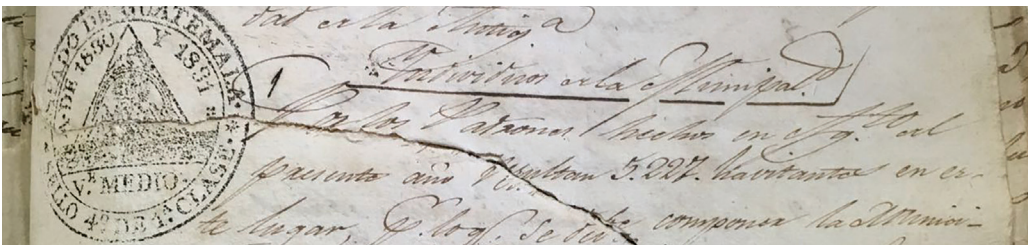 ESTADO DE GUATEMALA.
DE 1830 Y 1831
Vn. MEDIO.
SELLO 4º. DE 1ª. CLASE.
dad en la
Individuos en la Municipald.
Por los Padrones hechos en Agto. del
presente año resultan 5.227. havitantes en es-
te lugar, P. lo q. se debe componer la Munici-